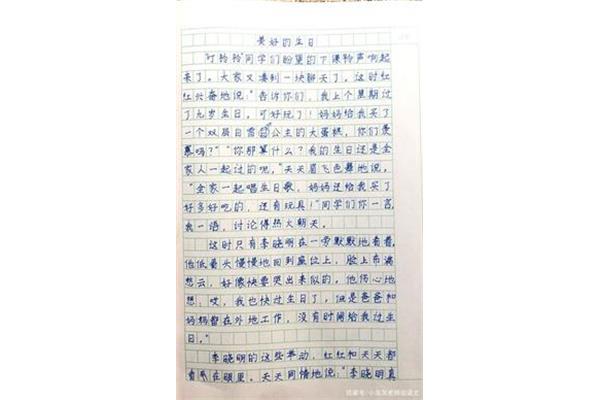 美好的生日
"叮铃铃"同学们盼望的下课铃声响起
来了。大家又凑到一块聊天了。这时红
红兴奋地说："告诉你们，我上个星期过
了九岁生日，可好玩了！妈妈给我买了
一个双层白雪公主的大蛋糕，你们羡
慕吗？""你那算什么？我的生日还是全
家人一起过的呢，"天天眉飞色舞地说，
"全家一起唱生日歌，妈妈还给我买了
好多好吃的，还有玩具！"同学们你一言，
我一语，讨论得热火朝天。
这时只有李晓明在一旁默默地看着，
他低着头慢慢地回到座位上，脸上布满
愁云，好像快要哭出来似的，他伤心地
想：哎，我也快过生日了，但是爸爸和
妈妈都在外地工作，没有时间给我过生
日。"
李晓明的这些举动，红红和天天都
看在眼里。天天同情地说："李晓明真